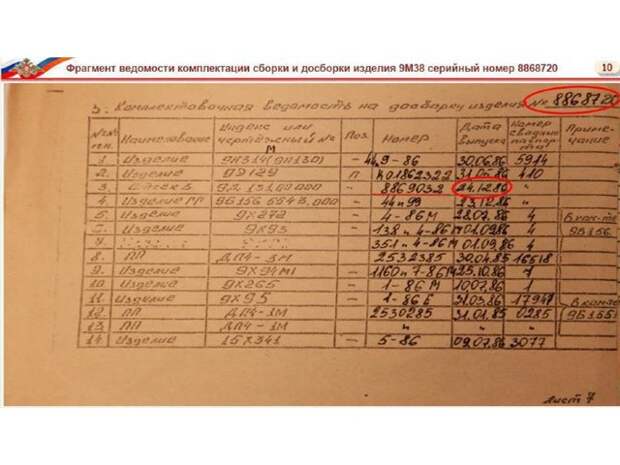 Фрагмент ведомости комплектации сборки и досборки изделия 9М38 серийный номер 8868720 10
3. Комплектовочная ведомость на дособорку изделия № 8868720
№№ п.п. Наименование Индекс или чертежный № Поз Номер Дата выпуска Номер сводный паспорта Приме-чание
М
1 Изделие 9Н314(9П130) – 44.9-86 30.06.86 5914
2. Изделие 9Э129 П 31.05.86 410
3 9Д 131.00.000 – 8869032 24.12.86 "
4. Изделие ГГ – 44п99 23.12.86 "
5. Изделие 9Х272 – 4-86М 28.07.86 4
Изделие 9Х93 – 138п 4-86М 01.09.86 4 9Б156
351п 4-86М 01.09.86 4
8. ПП ДП4-3М 2532385 30.04.85 16518
9. Изделие 9Х94М1 – 1160п 7-86М 25.10.86 1
10 Изделие 9Х265 – 1-86М 10.07.86 1
11 Изделие 9Х95 – 1-86Е 31.03.86 17947
12. ПП ДП4-3М 2530285 31.01.85 0285 (9Б155)
13. ПП ДП4-3М " "
14. Изделие 15Х341 – 5-86 09.07.86 3077
Лист 7